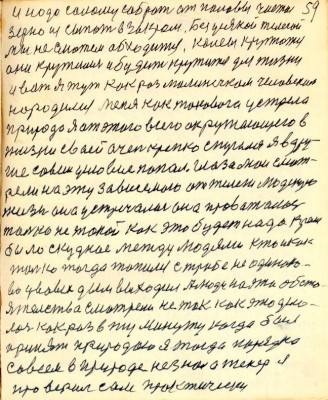 и надо самому собрат от половы чиста 59
зерно и сыпат в закром. Без всякой телегой
мы не смотем обходит, колем крутоту
они крутили и будет крутить для жизни
и вот я тут как раз маленчком человеком
народился меня как такового устрела
природа я от этого всего окружающего в
жизни своей очен крепко спугался я в дру-
гие совсем условие попал. глаза мои смот-
рели на эту зависемаю от телеги людскую
жизн она устречалас она проваталас
только не такой как это будет надо
было скудное между людями кто и как
только тогда топили с трубе не одинако-
во увовсе дым выходил люди на эти обсто-
ятелства смотрели не так как это дела-
лос как раз в ту минуту когда был
принят природою я тогда порядка
совсем в природе не знал а тепер я
проверил сам практически